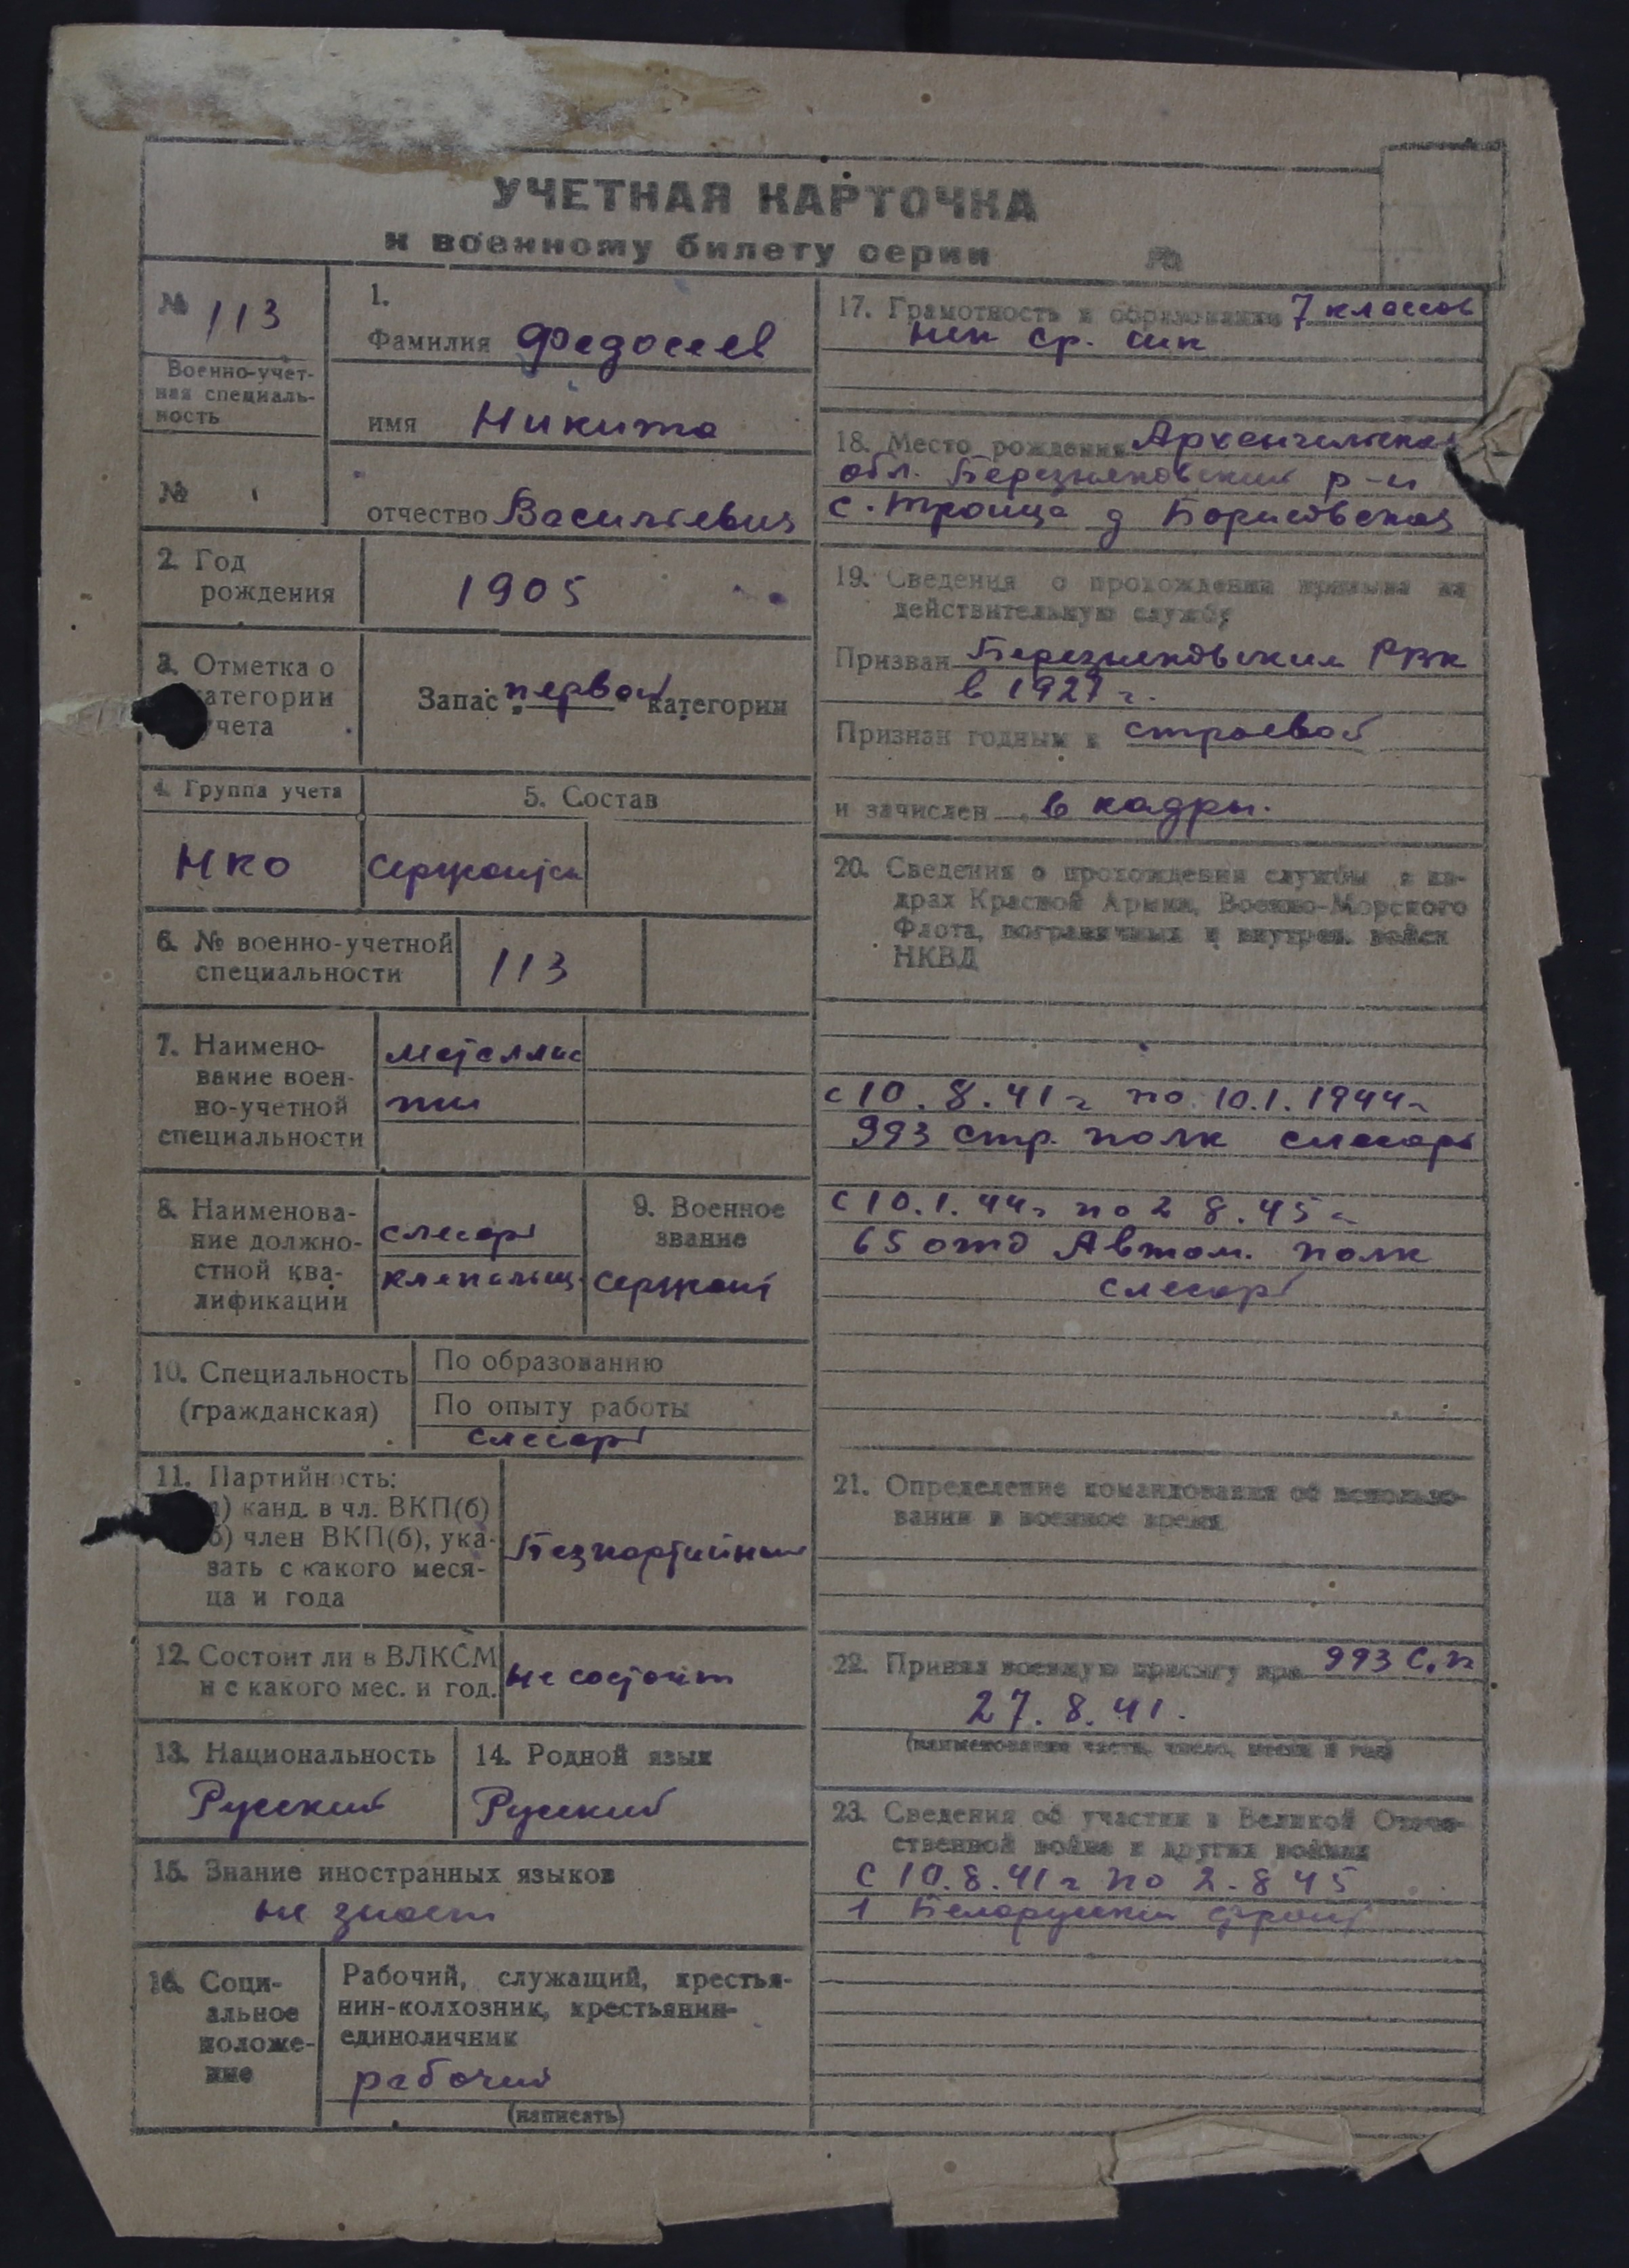 УЧЕТНАЯ КАРТОЧКА
к военному билету серии №
№ 113
Военно-учет-
ная специаль-
ность
№
1.
Фамилия Федосеев
имя Никита
отчество Васильевич
2. Год
рождения
1905
3. Отметка о
категории
учета
Запас первой категории
4. Группа учета
НКО
5. Состав
Сержантск
6. № военно-учетной
специальности
113
7. Наимено-
вание воен-
но-учетной
специальности
металлис
ты
8. Наименова-
ние должно-
стной ква-
лификации
слесарь
клепальщ.
9. Военное
звание
Сержант
10. Специальность
(гражданская)
По образованию
По опыту работы
слесарь
11. Партийность:
а) канд. в чл. ВКП(б)
б) член ВКП(б), ука-
зать с какого меся-
ца и года
Безпартийный
12. Состоит ли в ВЛКСМ
и с какого мес. и год.
не состоит
13. Национальность
Русский
14. Родной язык
Русский
15. Знание иностранных языков
не знает
16. Соци-
альное
положе-
ние
Рабочий, служащий, крестья-
нин-колхозник, крестьянин-
единоличник
рабочий
(написать)
17. Грамотность и образование 7 классов
неп ср. шк
18. Место рождения Архангельская
обл. Березниковский р-н
с. Троица д Борисовская
19. Сведения о прохождении призыва на
действительную службу
Призван Березниковским РВК
в 1927 г.
Признан годным к строевой
и зачислен в кадры.
20. Сведения о прохождении службы в ка-
драх Красной Армии, Военно-Морского
Флота, пограничных и внутрен. войск
НКВД
с 10.8.41 г по 10.1.1944 г
993 стр. полк слесарь
с 10.1.44 г по 2 8.45 г
65 отд Автом. полк
слесарь
21. Определение командования об использо-
вании в военное время
22. Принял военную присягу при 993 С.П
27.8.41.
(наименование части, число, месяц и год)
23. Сведения об участии в Великой Отече-
ственной войне и других войнах
с 10.8.41 г по 2.8 45
1 Белорусский фронт